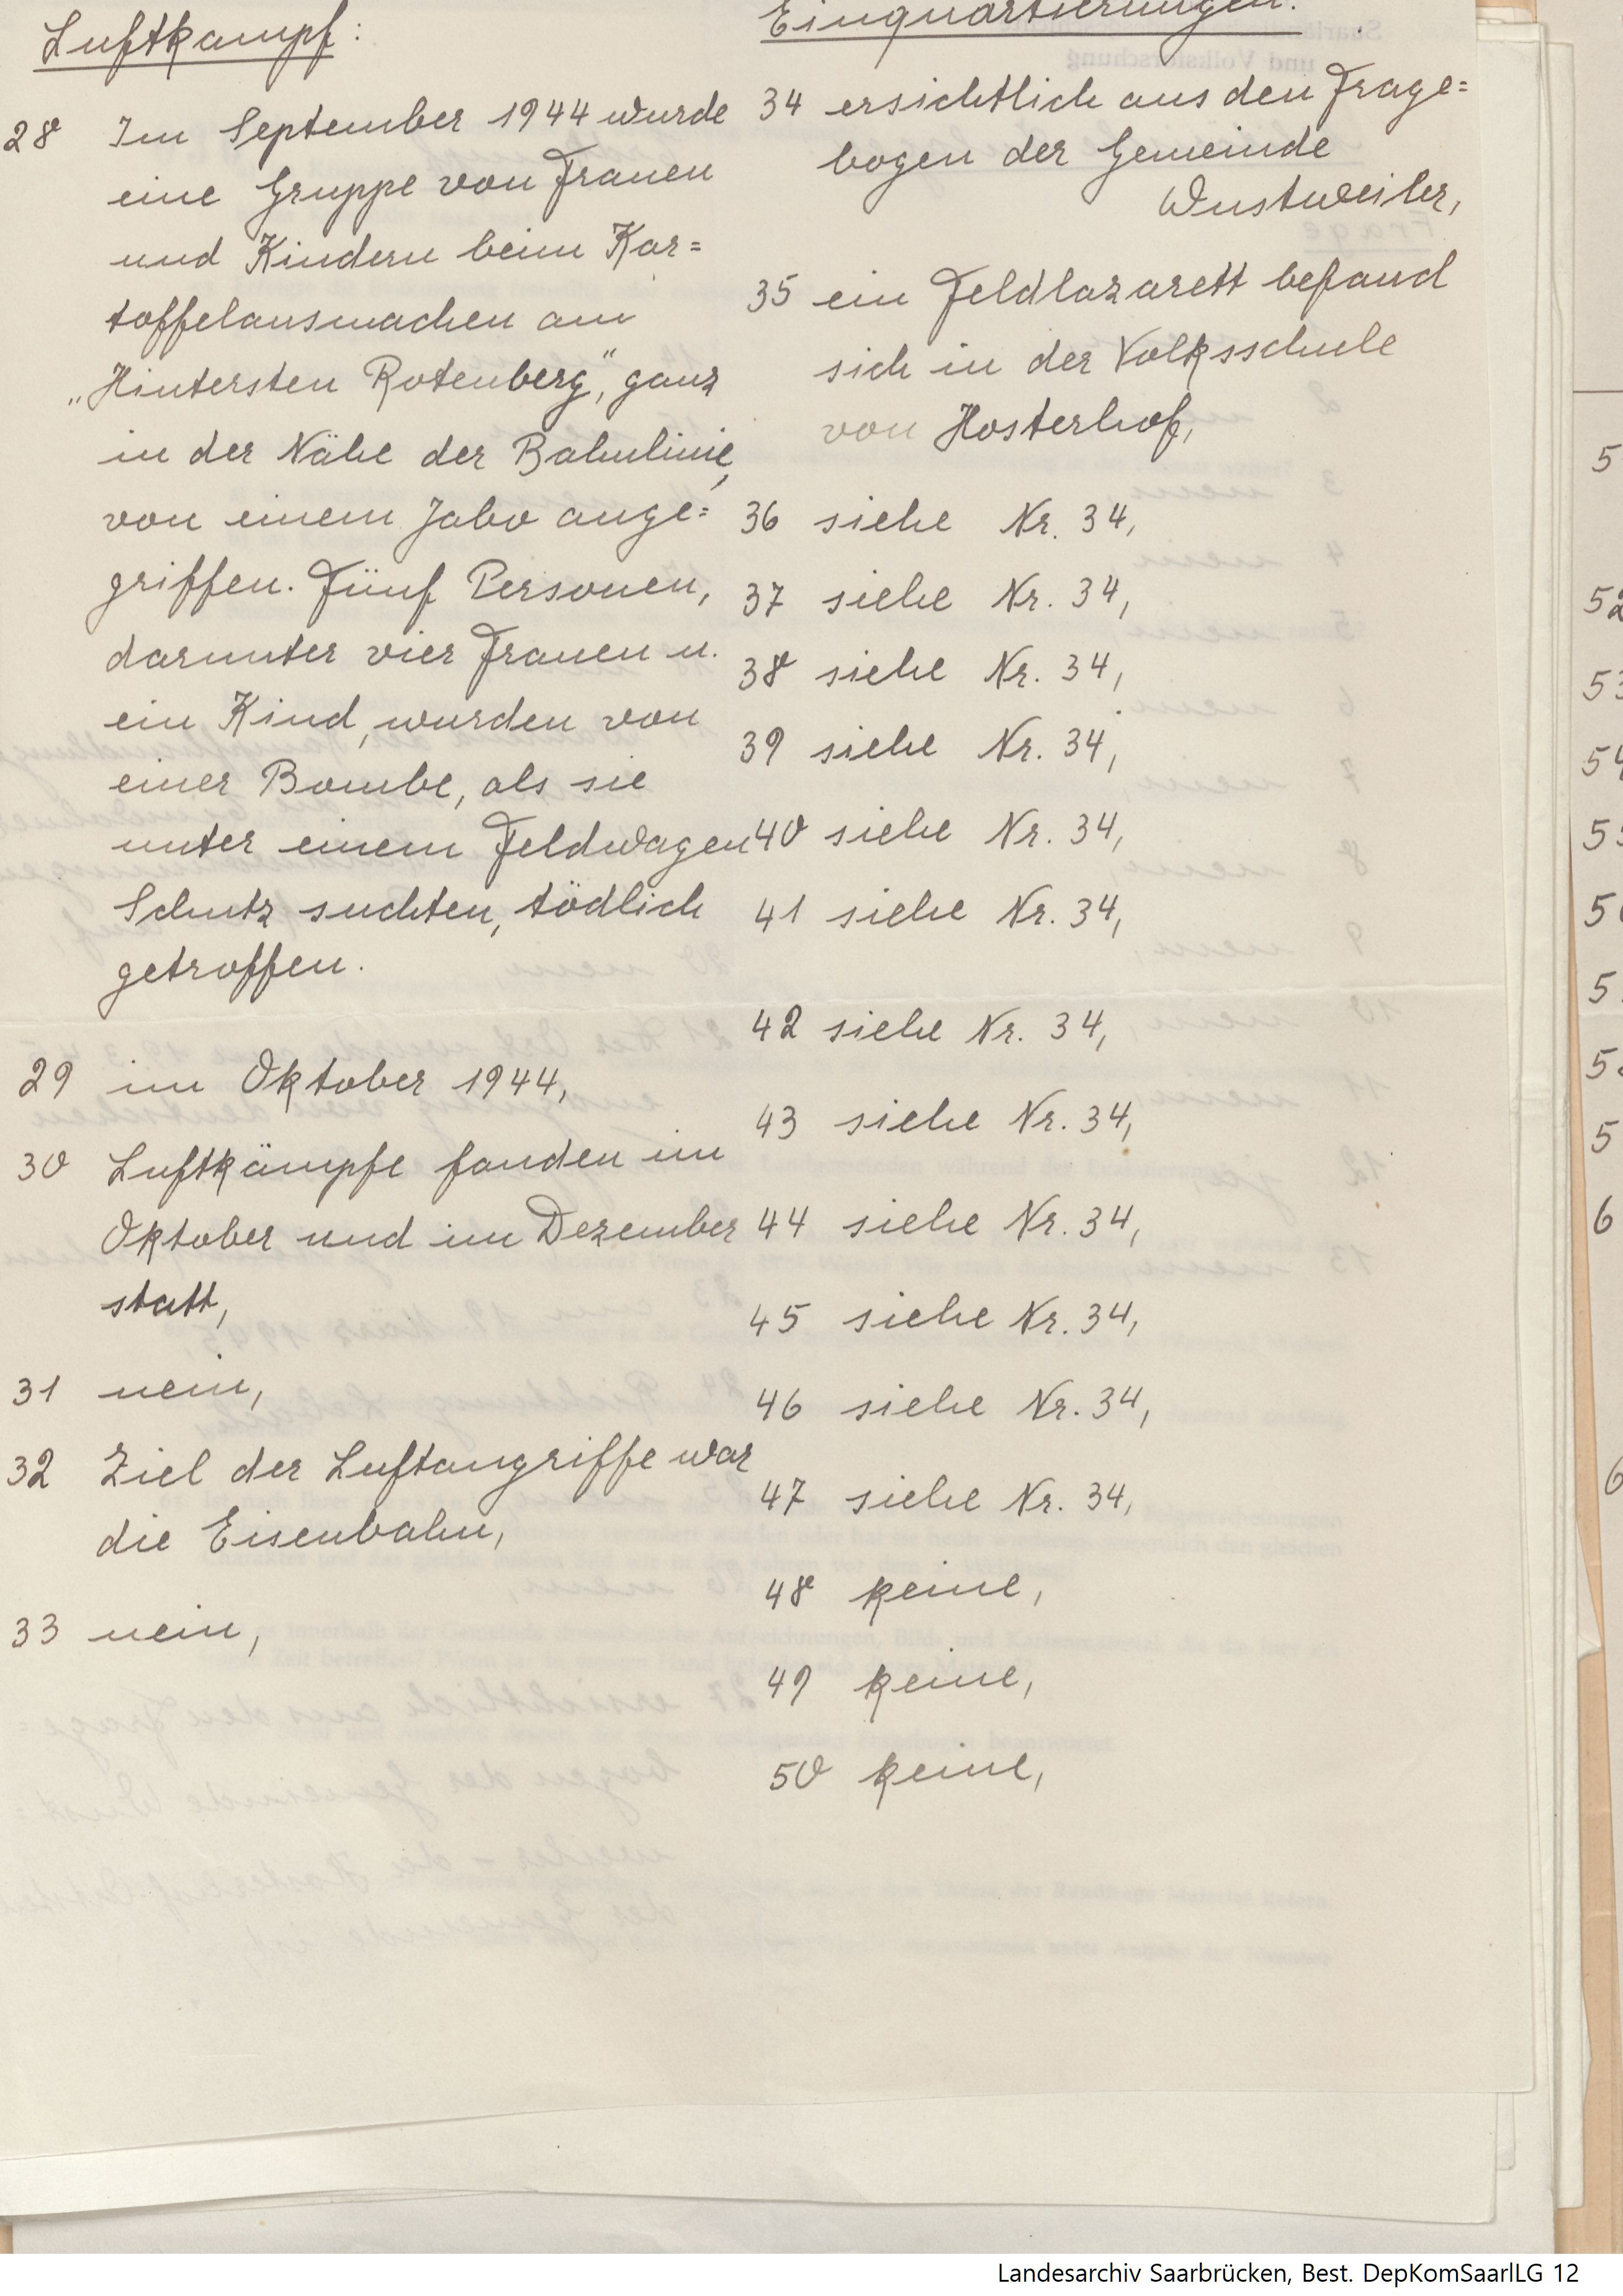 Luftkampf:
28 Im September 1944 wurde
eine Gruppe von Frauen
und Kindern beim Kar=
toffelausmachen am
„Hintersten Rotenberg", ganz
in der Nähe der Bahnlinie,
von einem Jabo ange=
griffen. Fünf Personen,
darunter vier Frauen u.
ein Kind, wurden von
einer Bombe, als sie
unter einem Feldwagen
Schutz suchten, tödlich
getroffen.
29 im Oktober 1944,
30 Luftkämpfe fanden im
Oktober und im Dezember
statt,
31 nein,
32 Ziel der Luftangriffe war
die Eisenbahn,
33 nein,
Einquartierungen:
34 ersichtlich aus den Frage=
bogen der Gemeinde
Wustweiler,
35 ein Feldlazarett befand
sich in der Volksschule
von Hosterhof,
36 siehe Nr. 34,
37 siehe Nr. 34,
38 siehe Nr. 34,
39 siehe Nr. 34,
40 siehe Nr. 34,
41 siehe Nr. 34,
42 siehe Nr. 34,
43 siehe Nr. 34,
44 siehe Nr. 34,
45 siehe Nr. 34,
46 siehe Nr. 34,
47 siehe Nr. 34,
48 keine,
49 keine,
50 keine,
52
53
54
Landesarchiv Saarbrücken, Best. DepKomSaarlLG 12